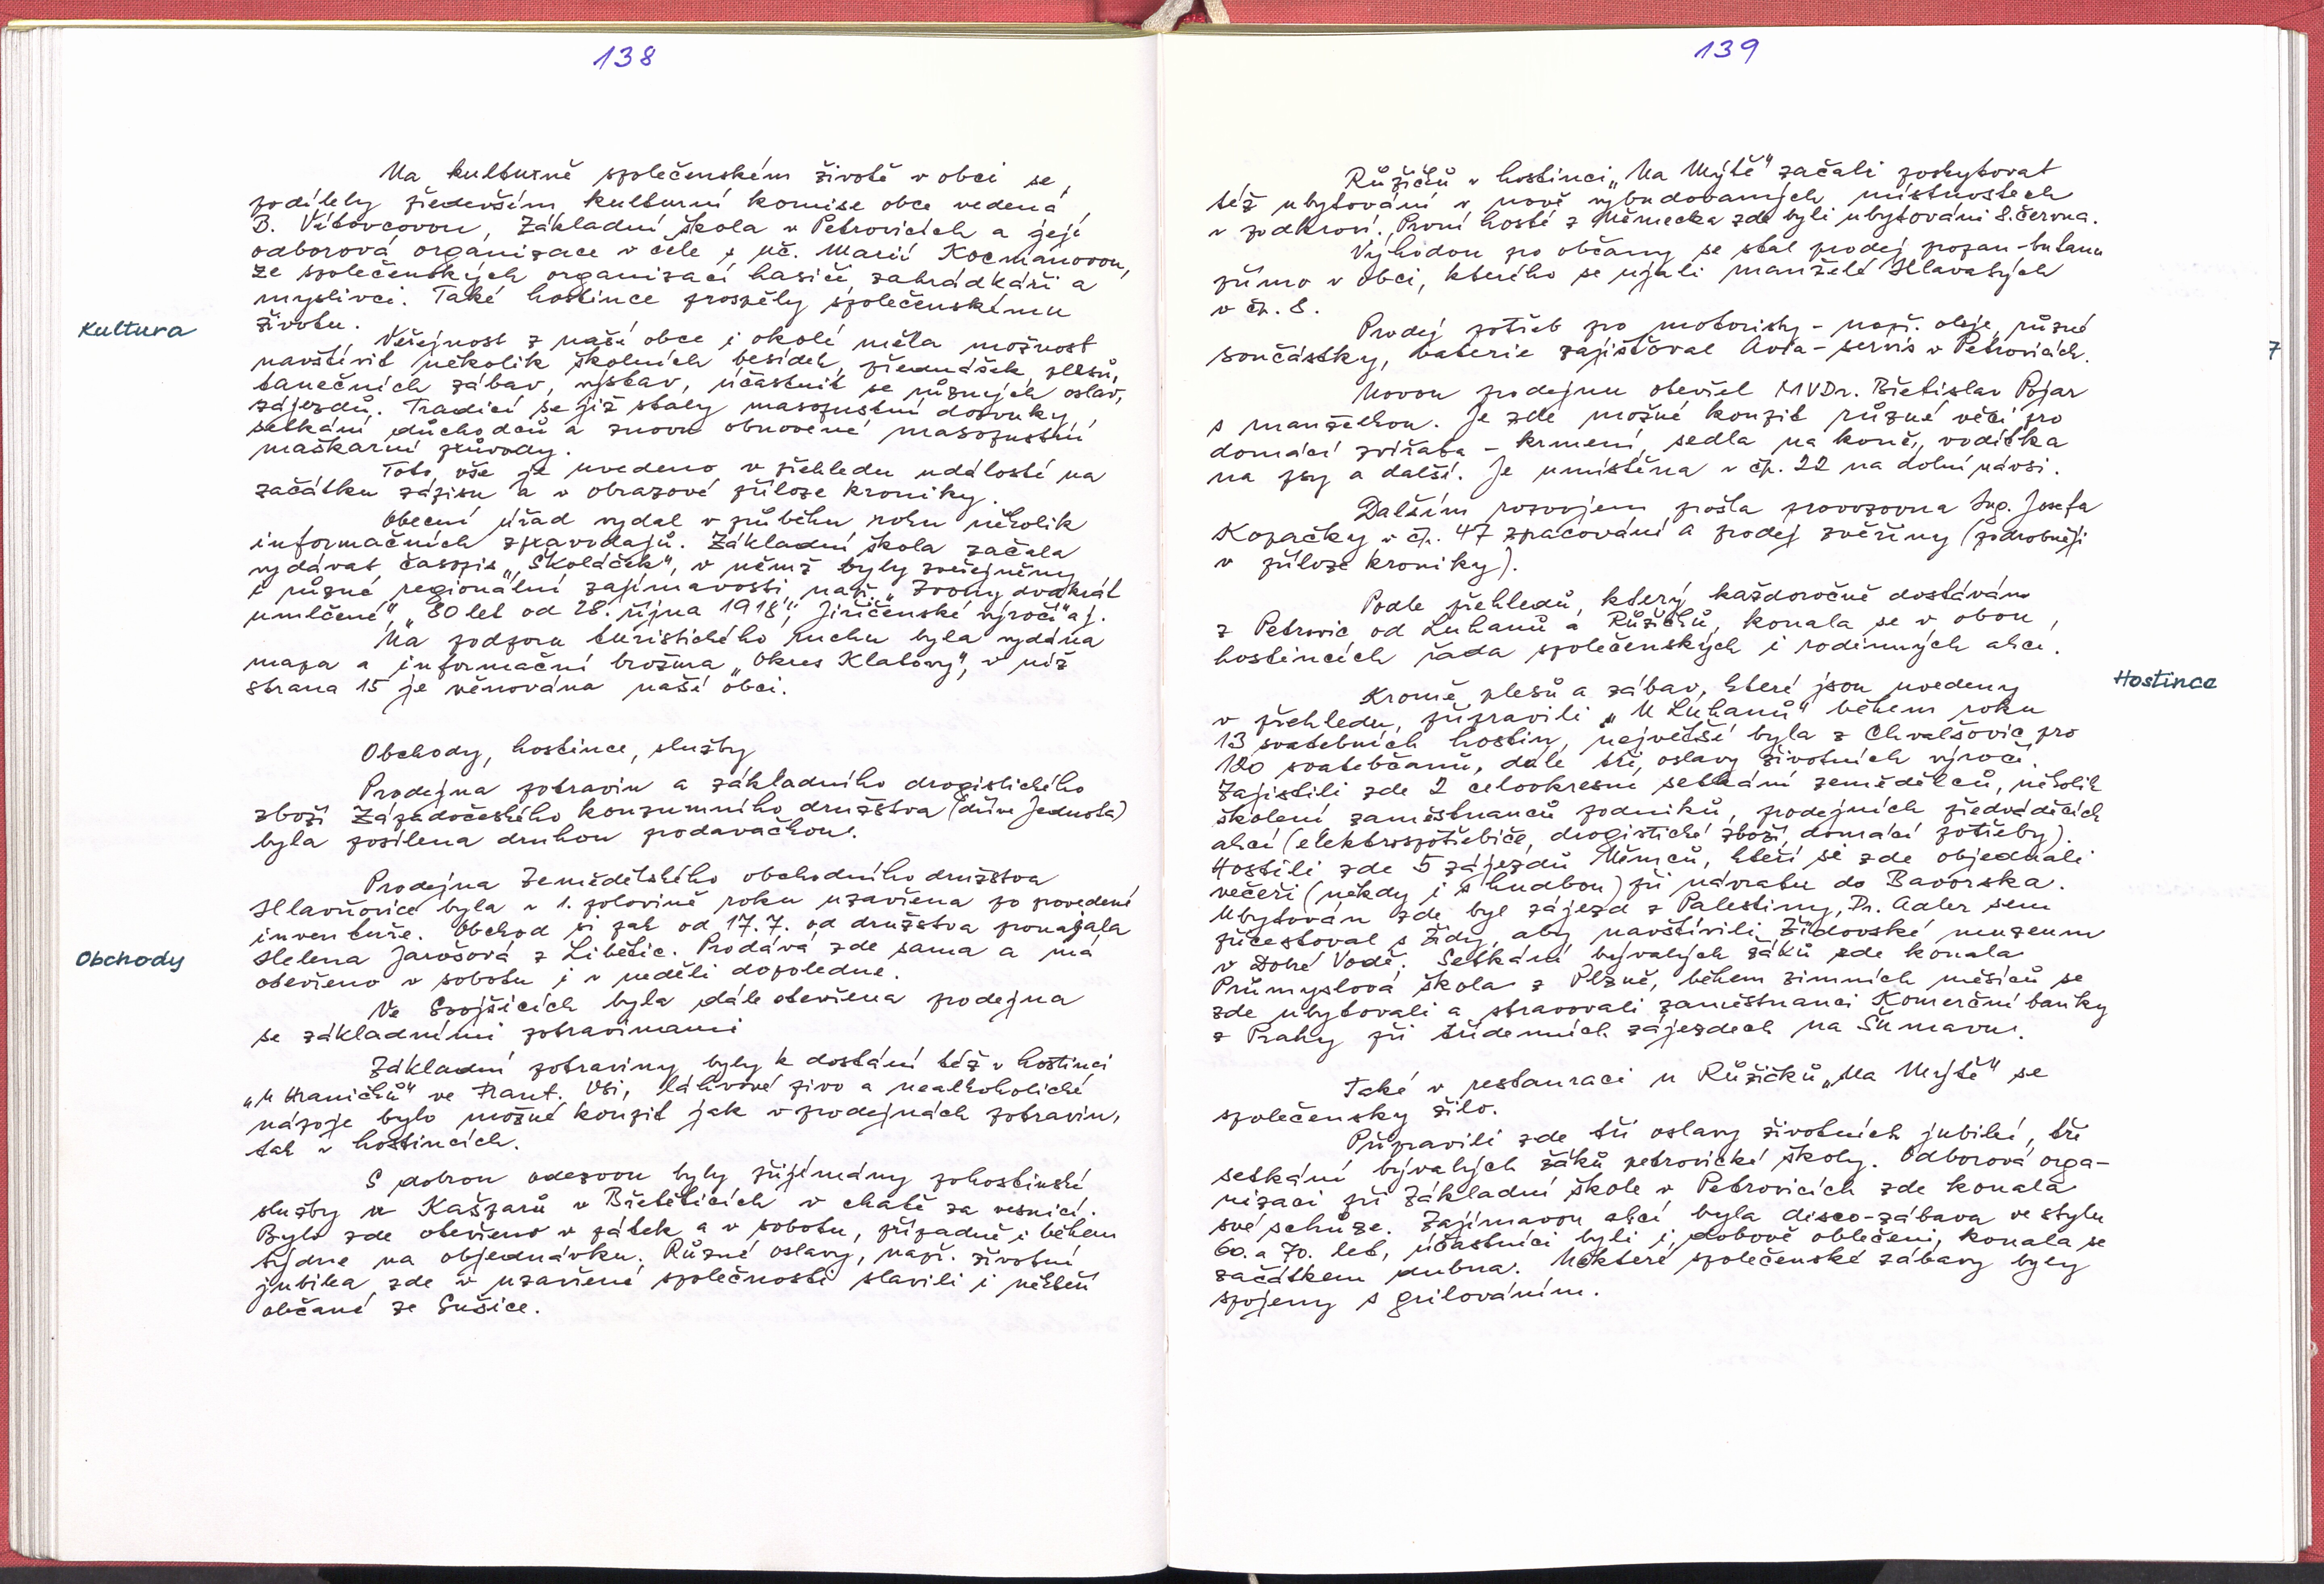 138
Na kulturně společenském životě v obci se
podílely především kulturní komise obce vedená
B. Vítovcovou, Základní škola v Petrovicích a její
odborová organizace v čele s uč. Marií Kocmanovou,
ze společenských organizací hasiči, zahrádkáři a
myslivci. Také hostince prospěly společenskému
životu.
Kultura
Veřejnost z naší obce i okolí měla možnost
navštívit několik školních besídek, přednášek, plesů,
tanečních zábav, výstav, účastnit se různých oslav,
zájezdů. Tradicí se již staly masopustní dozvuky,
setkání důchodců a znovu obnovené masopustní
maškarní průvody.
Toto vše je uvedeno v přehledu událostí na
začátku zápisu a v obrazové příloze kroniky.
Obecní úřad vydal v průběhu roku několik
informačních zpravodajů. Základní škola začala
vydávat časopis „Školáček", v němž byly zveřejněny
i různé regionální zajímavosti, např. „Zvony dvakrát
umlčené", „80 let od 28. října 1918", „Jiřičenské výročí" aj.
Na podporu turistického ruchu byla vydána
mapa a informační brožura „Okres Klatovy", v níž
strana 15 je věnována naší obci.
Obchody, hostince, služby
Prodejna potravin a základního drogistického
zboží Západočeského konzumního družstva (dříve Jednota)
byla posílena druhou prodavačkou.
Prodejna Zemědělského obchodního družstva
Hlavňovice byla v 1. polovině roku uzavřena po provedené
inventuře. Obchod si pak od 17.7. od družstva pronajala
Helena Jarošová z Libětic. Prodává zde sama a má
Obchody
otevřeno v sobotu i v neděli dopoledne.
Ve Svojšicích byla dále otevřena prodejna
se základními potravinami
Základní potraviny byly k dostání též v hostinci
„U Hraničků" ve Frant. Vsi, láhvové pivo a nealkoholické
nápoje bylo možné koupit jak v prodejnách potravin,
tak v hostincích.
S dobrou odezvou byly přijímány pohostinské
služby u Kašparů v Břetěticích v chatě za vesnicí.
Bylo zde otevřeno v pátek a v sobotu, případně i během
týdne na objednávku. Různé oslavy, např. životní
jubilea, zde v uzavřené společnosti slavili i někteří
občané ze Sušice.
139
Růžičků v hostinci „Na Mýtě" začali poskytovat
též ubytování v nově vybudovaných místnostech
v podkroví. První hosté z Německa zde byli ubytováni 8. června.
Výhodou pro občany se stal prodej propan-butanu
přímo v obci, kterého se ujali manželé Hlavatých
v čp. 8.
Prodej potřeb pro motoristy - např. oleje, různé
součástky, baterie zajišťoval Avia-servis v Petrovicích.
7
Novou prodejnu otevřel MVDr. Břetislav Pojar
s manželkou. Je zde možné koupit různé věci pro
domácí zvířata - krmení, sedla na koně, vodítka
na psy a další. Je umístěna v čp. 22 na dolní návsi.
Dalším rozvojem prošla provozovna Ing. Josefa
Kopačky v čp. 47 zpracování a prodej zvěřiny (podrobněji
v příloze kroniky).
Podle přehledů, který každoročně dostávám
z Petrovic od Luhanů a Růžičků, konala se v obou
hostincích řada společenských i rodinných akcí.
Hostince
Kromě plesů a zábav, které jsou uvedeny
v přehledu, připravili „U Luhanů" během roku
13 svatebních hostin, největší byla z Chvalšovic pro
120 svatebčanů, dále tři oslavy životních výročí.
Zajistili zde 2 celookresní setkání zemědělců, několik
školení zaměstnanců podniků, prodejních předváděcích
akcí (elektrospotřebiče, drogistické zboží, domácí potřeby).
Hostili zde 5 zájezdů Němců, kteří si zde objednali
večeři (někdy i s hudbou) při návratu do Bavorska.
Ubytován zde byl zájezd z Palestiny, Dr. Adler sem
přicestoval s Židy, aby navštívili Židovské muzeum
v Dobré Vodě. Setkání bývalých žáků zde konala
Průmyslová škola z Plzně, během zimních měsíců se
zde ubytovali a stravovali zaměstnanci Komerční banky
z Prahy při třídenních zájezdech na Šumavu.
Také v restauraci u Růžičků „Na Mýtě" se
společensky žilo.
Připravili zde tři oslavy životních jubileí, tři
setkání bývalých žáků petrovické školy. Odborová orga-
nizaci při Základní škole v Petrovicích zde konala
své schůze. Zajímavou akcí byla disco-zábava ve stylu
60. a 70. let, účastníci byli i dobově oblečeni, konala se
začátkem dubna. Některé společenské zábavy byly
spojeny s grilováním.